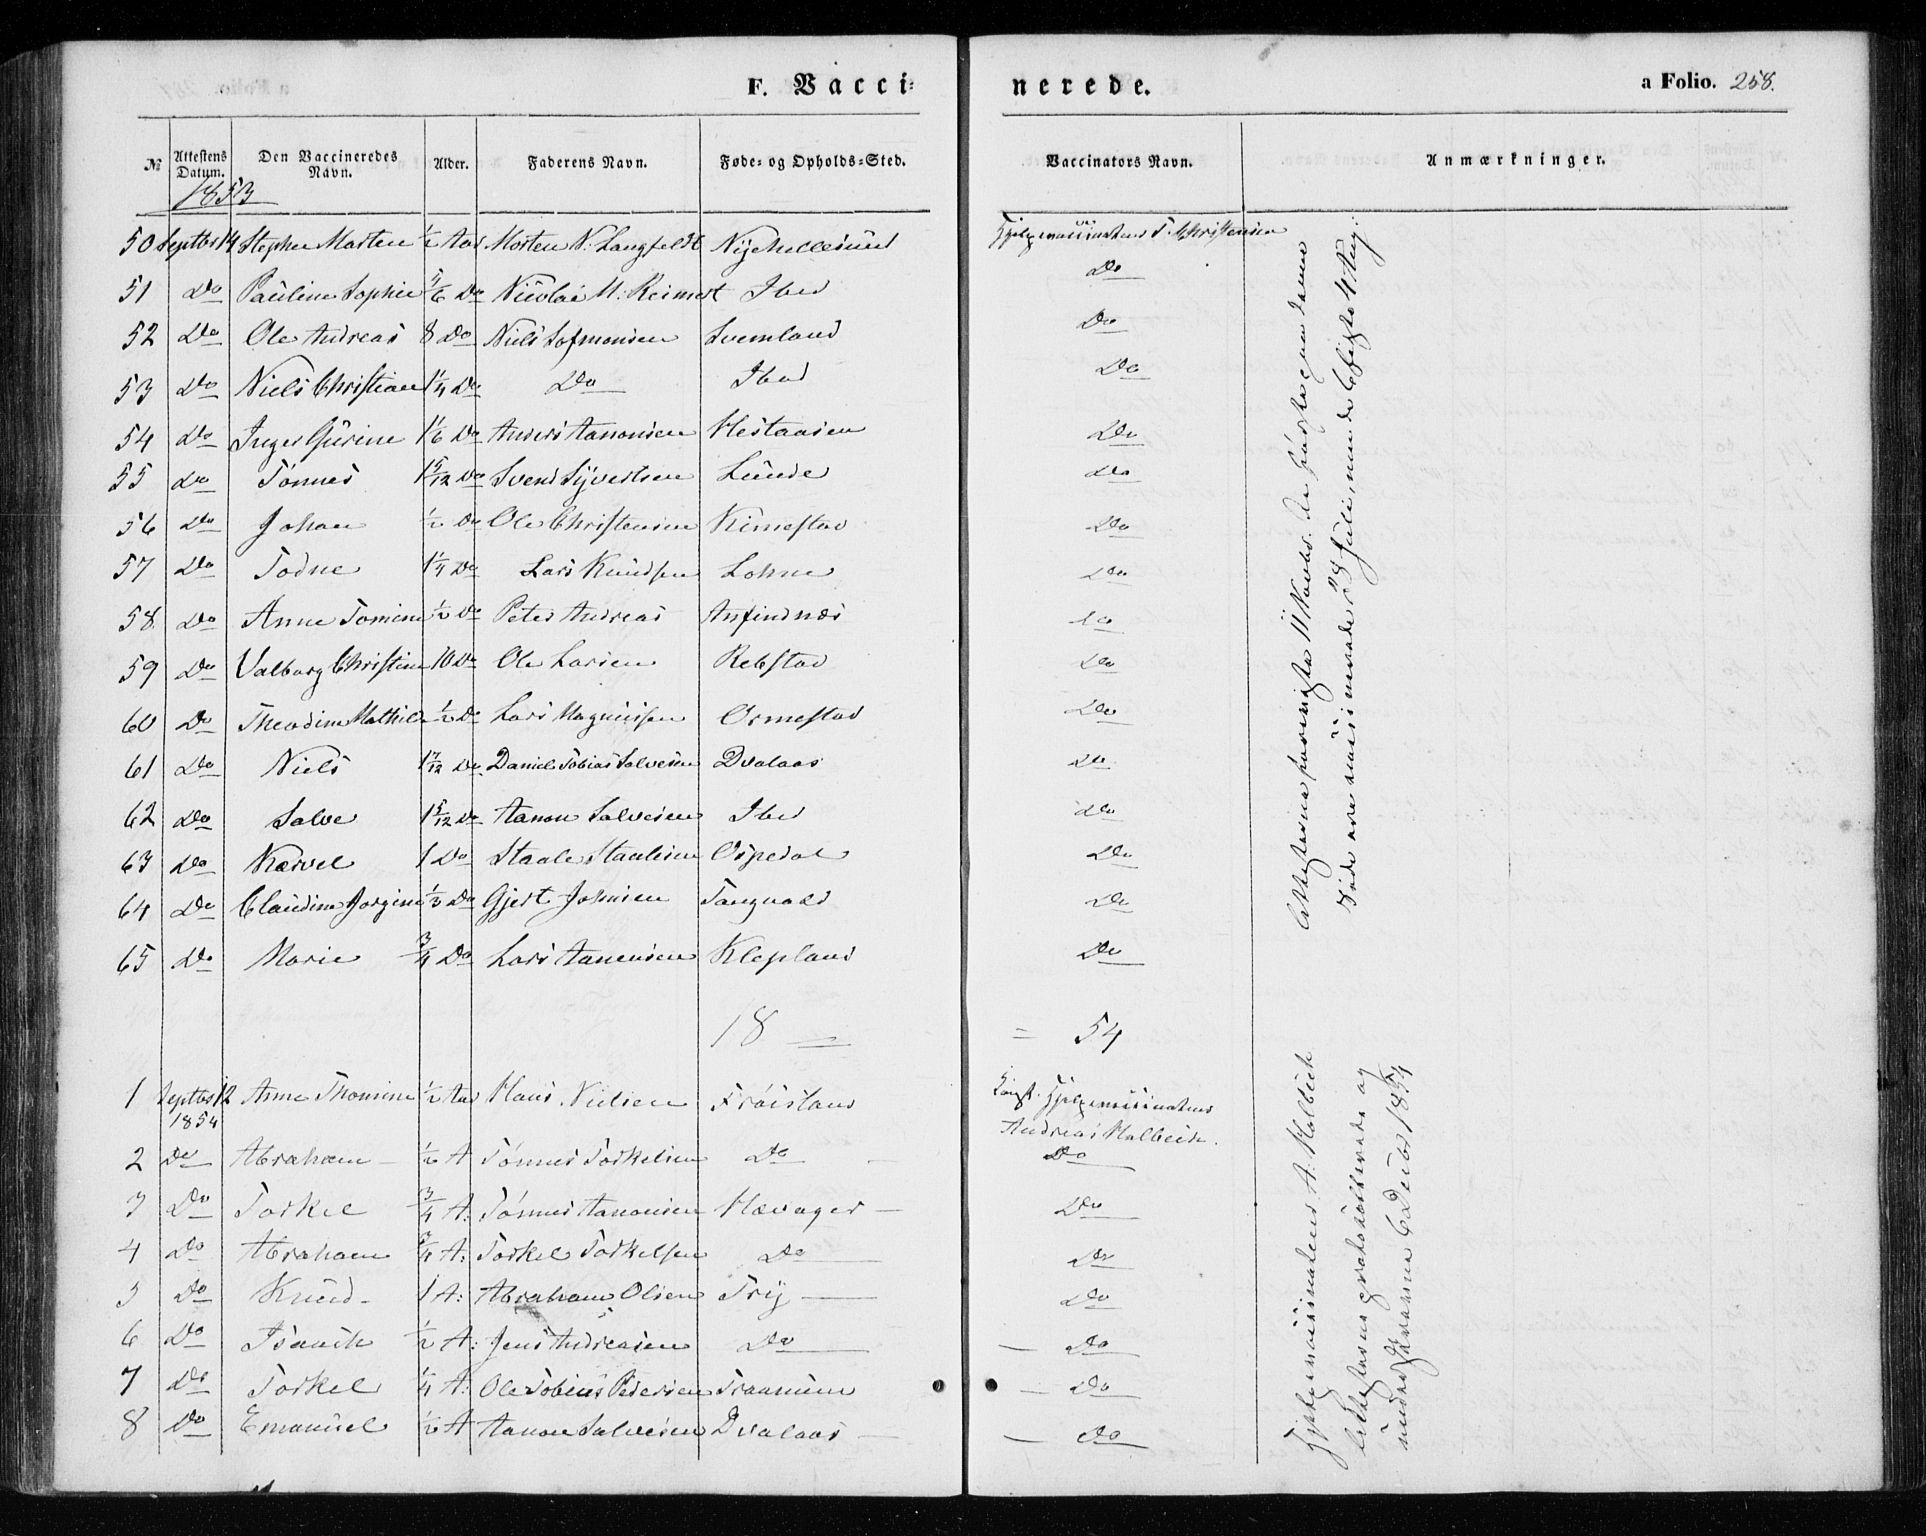 F. Vacci-
nerede.
a Folio. 258.
№ Attestens Datum. Den Vaccineredes Navn. Alder. Faderens Navn. Føde- og Opholds-Sted. Vaccinators Navn. Anmærkninger.
1853
50 Septbr 14 Stephen Morten ½ Aar Morten N. Langfeldt Nye Hellesund Hjelpevaccinateur T. Christensen
51 Do Pauline Sophie 5/6 Do Nicolai M. Reimert Ibid Do
52 Do Ole Andreas 8 Do Niels Sofmonsen Svemland Do
53 Do Niels Christian 1¼ Do Do Ibid Do
54 Do Inger Gurine 1 1/6 Do Anders Aanonsen Hestaasen Do
55 Do Tønnes 1 5/12 Do Svend Syvertsen Lunde Do
56 Do Johan ½ Do Ole Christensen Kimestad Do
57 Do Todne 1¼ Do Lars Knudsen Lohne Do
58 Do Anne Tomine ½ Do Peter Andreas Anfindnæs Do
59 Do Valborg Christine 10 Do Ole Larsen Rebstad Do
60 Do Theodine Mathilde ½ Do Lars Magnusen Ormestad Do
61 Do Niels 1 7/12 Do Daniel Tobias Salvesen Dvalaas Do
62 Do Salve 1 5/12 Do Aanon Salvesen Ibid Do
63 Do Narvel 1 Do Staale Staalesen Ospedal Do
64 Do Claudine Jorgine ½ Do Gjert Johnsen Tangvald Do
65 Do Marie ¾ Do Lars Aanensen Klepland Do
18 = 54
Attesterne forevigte 11 Novbr. De første
Døde ere vaccinerede 28 Juli, men de 6 sidste 4 Aug:
1 Septbr 12 1854 Anne Thomine ½ Aar Hans Nielsen Frøisland Const. Hjelpevaccinateur
Andreas Holbech.
2 Do Abraham ½ A Tønnes Torkelsen Do Do
3 Do Torkel ¾ A: Tønnes Aanonsen Hævager Do
4 Do Abraham ¾ A: Torkel Torkelsen Do Do
5 Do Knud 1 A: Abraham Olsen Try Do
6 Do Isaach ½ A: Jens Andreasen Do Do
7 Do Torkel ¼ A: Ole Tobias Pedersen Traanum Do
8 Do Emanuel ½ A Aanon Salvesen Dvalaas Do
Hjelpevaccinateur A. Holbech
Attesterne og
under 6 Decbr 1854